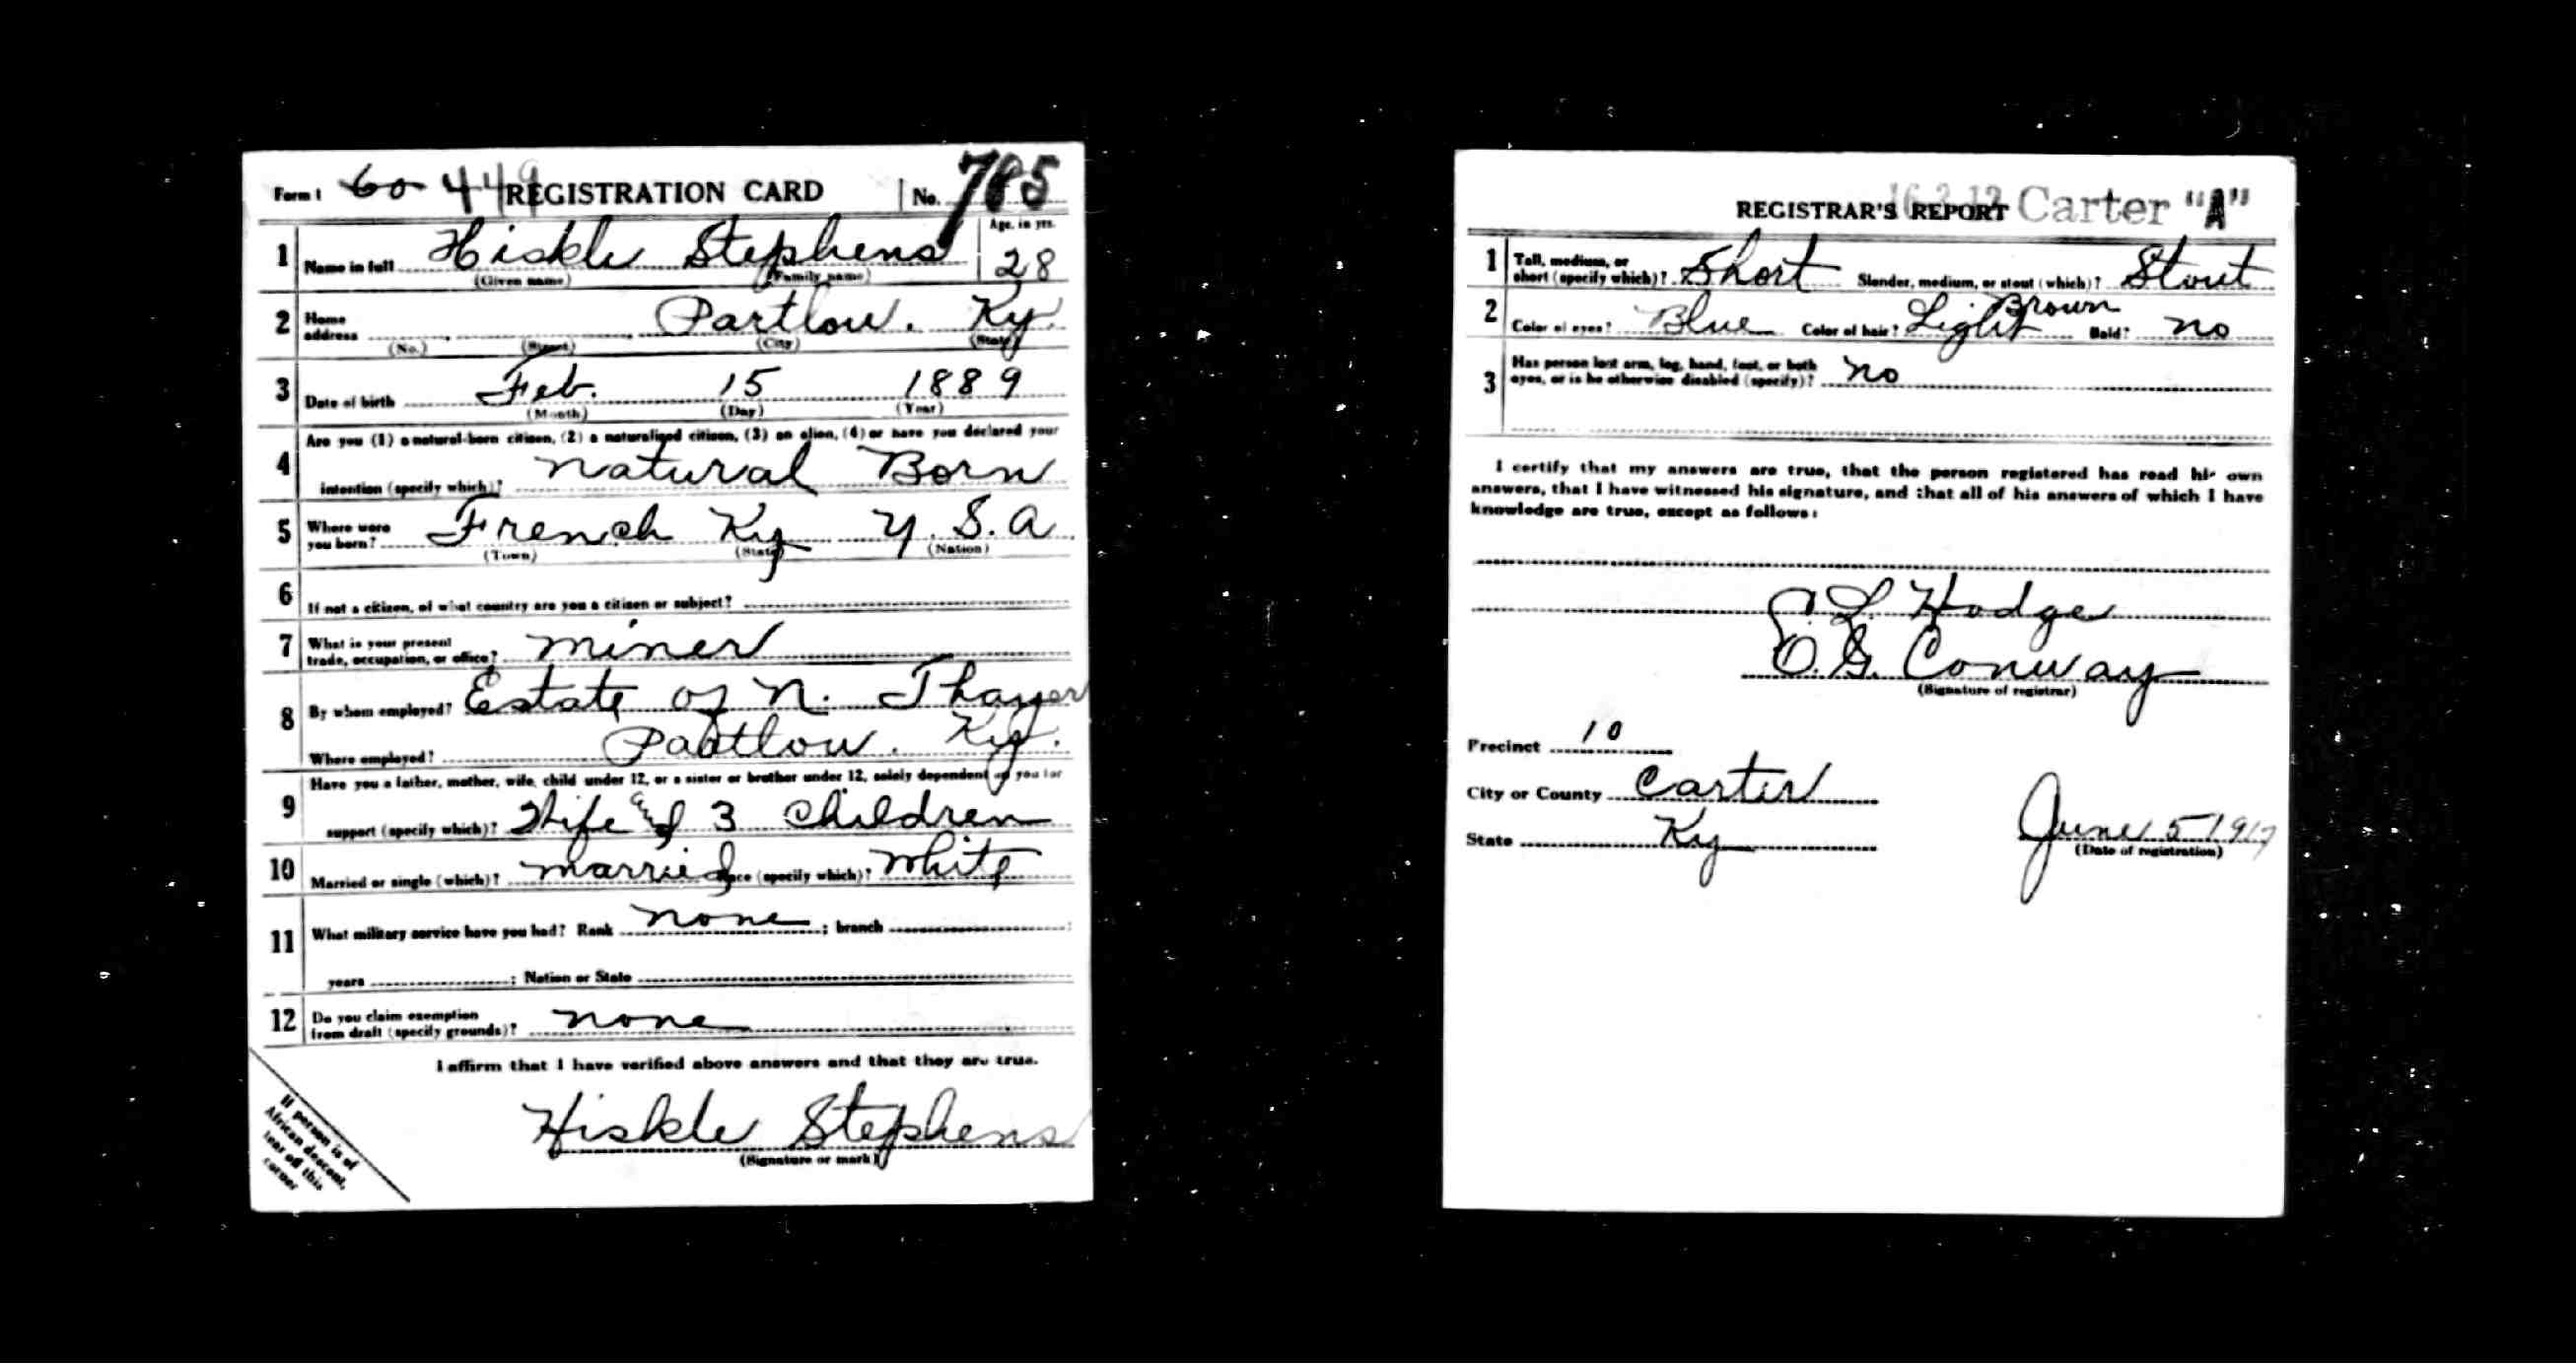 Form 1 60 449 REGISTRATION CARD No. 785
1 Name in full Hiskle Stephens Age, in yrs. 28
(Given name) (Family name)
2 Home address Partlow. Ky.
(No.) (Street) (City) (State)
3 Date of birth Feb. 15 1889
(Month) (Day) (Year)
Are you (1) a natural-born citizen, (2) a naturalized citizen, (3) an alien, (4) or have you declared your
4 intention (specify which)? natural Born
5 Where were you born? French Ky U.S.A
(Town) (State) (Nation)
6 If not a citizen, of what country are you a citizen or subject?
7 What is your present
trade, occupation, or office? miner
8 By whom employed? Estate of N. Thayer
Where employed? Partlow. Ky.
Have you a father, mother, wife, child under 12, or a sister or brother under 12, solely dependent on you for
9 support (specify which)? Wife and 3 children
10 Married or single (which)? married Race (specify which)? White
11 What military service have you had? Rank none ; branch
years ; Nation or State
12 Do you claim exemption
from draft (specify grounds)? none
I affirm that I have verified above answers and that they are true.
Hiskle Stephens
(Signature or mark)
If person is of
African descent,
tear off this
corner
16-2-12 Carter "A"
REGISTRAR'S REPORT
1 Tall, medium, or
short (specify which)? Short Slender, medium, or stout (which)? Stout
2 Color of eyes? Blue Color of hair? Light Brown Bald? no
3 Has person lost arm, leg, hand, foot, or both
eyes, or is he otherwise disabled (specify)? no
I certify that my answers are true, that the person registered has read his own
answers, that I have witnessed his signature, and that all of his answers of which I have
knowledge are true, except as follows:
C. L. Hodge
O. G. Conway
(Signature of registrar)
Precinct 10
City or County Carter
State Ky
June 5 1917
(Date of registration)